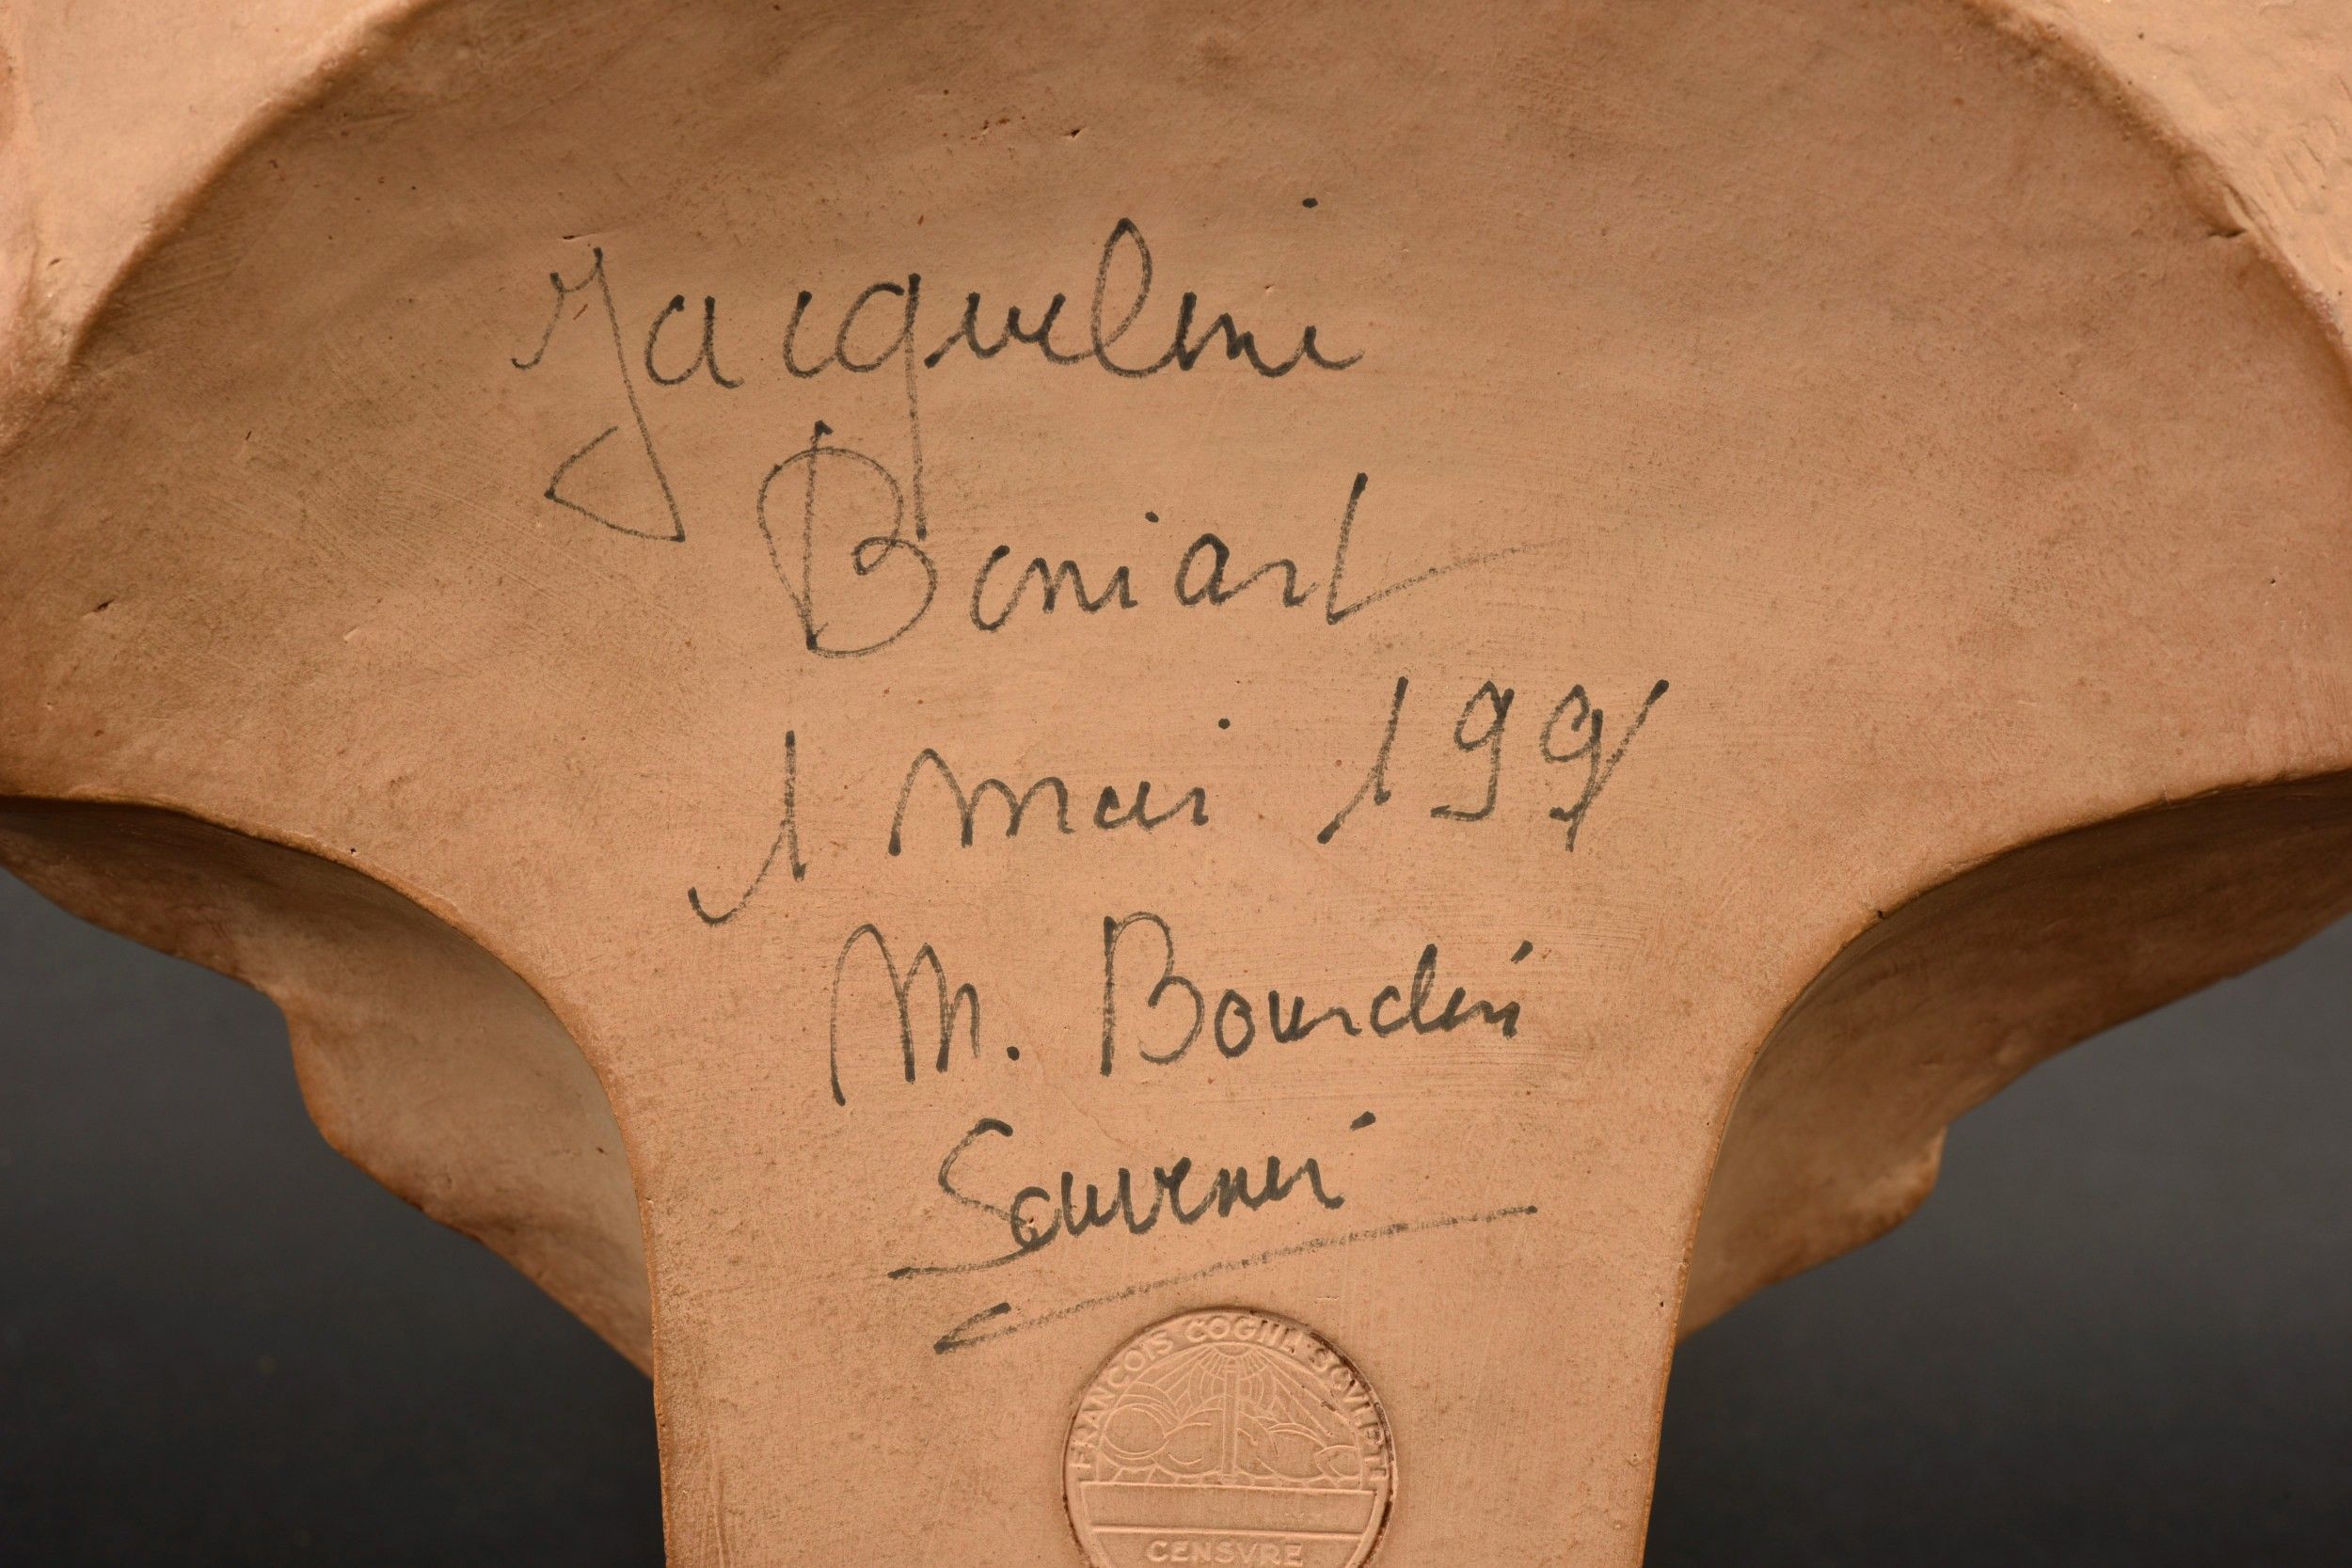 Jacqueline
Beniart
1 mai 1991
M. Bourdin
Souvenir
FRANÇOIS COGNÉ SCVLPT
CENSVRE